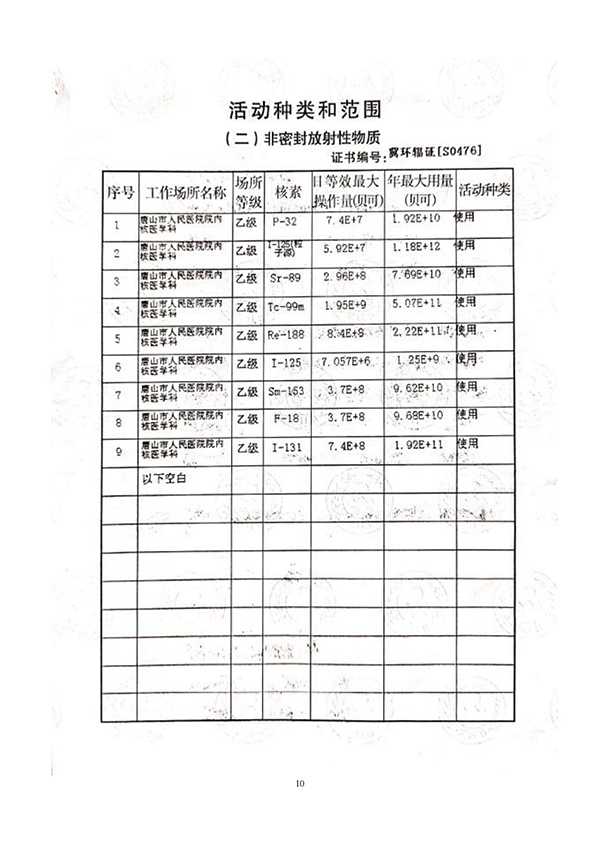 活动种类和范围
（二）非密封放射性物质
证书编号：冀环辐证[S0476]
序号 工作场所名称 场所等级 核素 日等效最大操作量(贝可) 年最大用量(贝可) 活动种类
1 唐山市人民医院院内核医学科 乙级 P-32 7.4E+7 1.92E+10 使用
2 唐山市人民医院院内核医学科 乙级 I-125(粒子源) 5.92E+7 1.18E+12 使用
3 唐山市人民医院院内核医学科 乙级 Sr-89 2.96E+8 7.69E+10 使用
4 唐山市人民医院院内核医学科 乙级 Tc-99m 1.95E+9 5.07E+11 使用
5 唐山市人民医院院内核医学科 乙级 Re-188 8.4E+8 2.22E+11 使用
6 唐山市人民医院院内核医学科 乙级 I-125 7.057E+6 1.25E+9 使用
7 唐山市人民医院院内核医学科 乙级 Sm-153 3.7E+8 9.62E+10 使用
8 唐山市人民医院院内核医学科 乙级 F-18 3.7E+8 9.68E+10 使用
9 唐山市人民医院院内核医学科 乙级 I-131 7.4E+8 1.92E+11 使用
以下空白
10